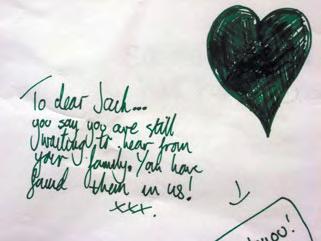 To dear Jack...
you say you are still
waiting to hear from
your family. You have
found them in us!
xxx.
you!